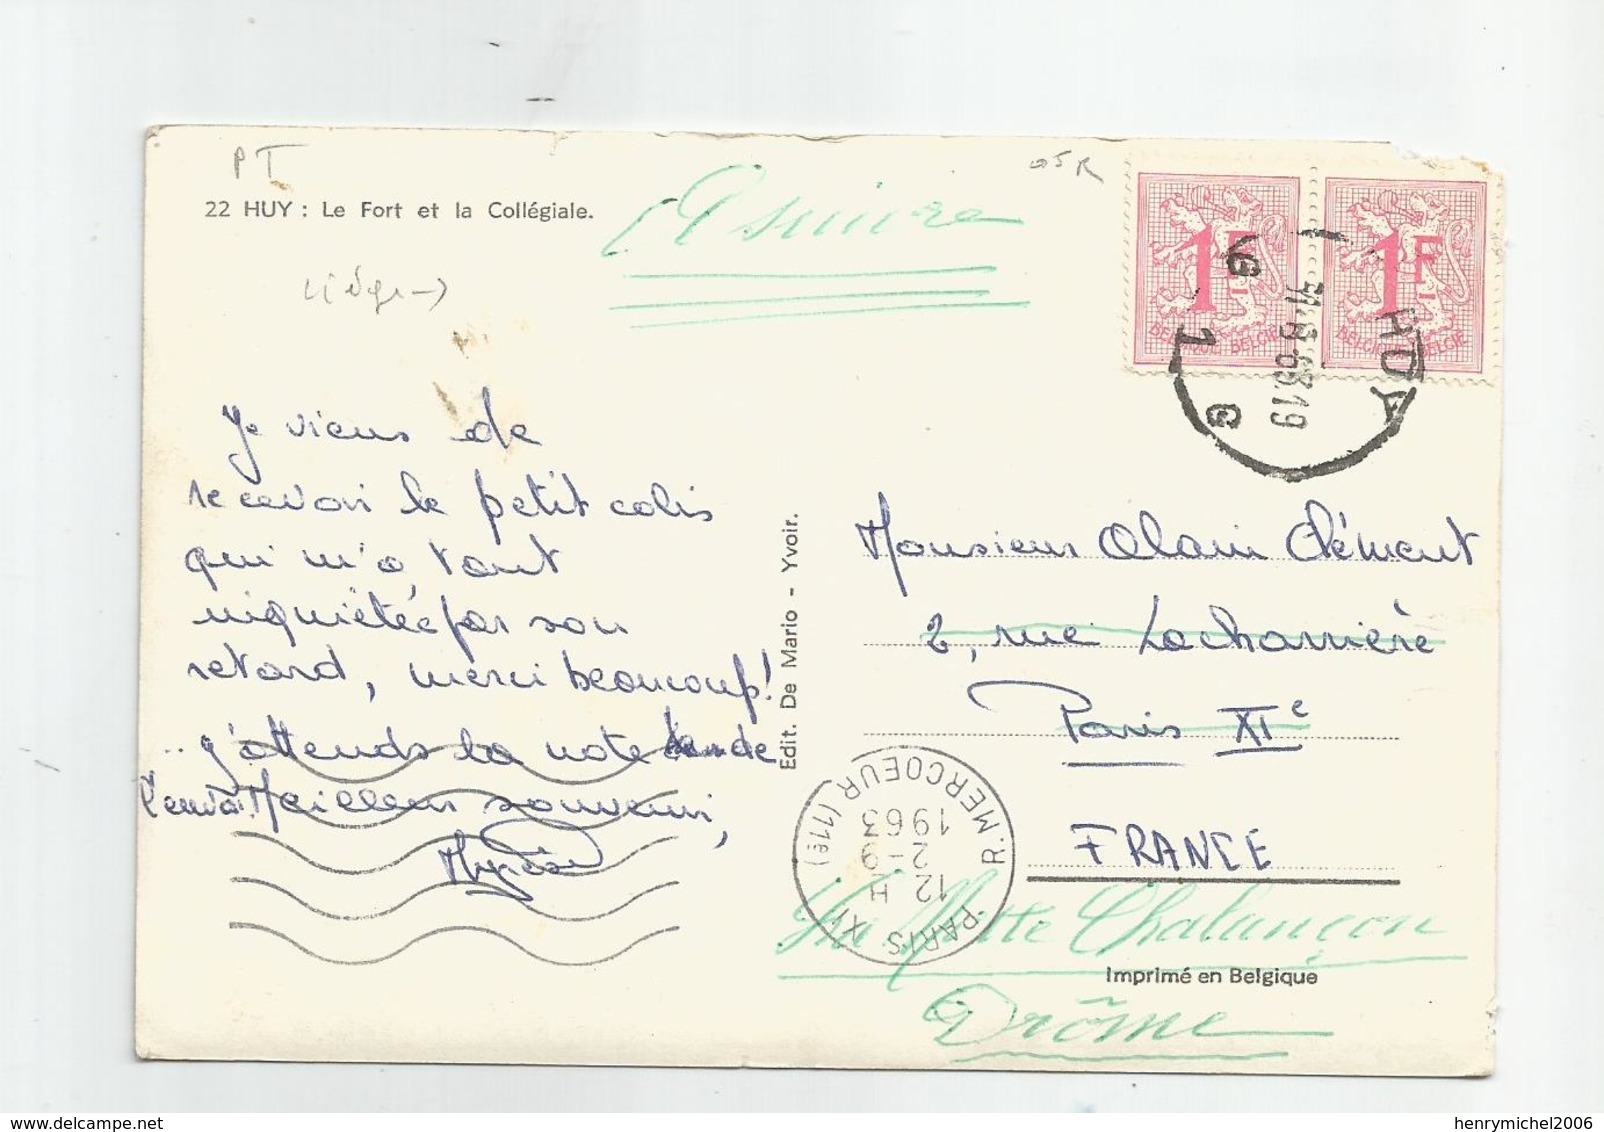 PT
22 HUY : Le Fort et la Collégiale.
Liège →
A suivre
05R
1F 1F
BELGIQUE BELGIË BELGIQUE BELGIË
HUY
1 G G 1
31.8.63.19
Je viens de
recevoir le petit colis
qui m'a tant
inquiétée par son
retard, merci beaucoup!
.. j'attends la note de
l'envoi. Meilleur souvenir,
Edit. De Mario - Yvoir.
Monsieur Alain Clément
2, rue Lacharrière
Paris XIe
FRANCE
PARIS XI R. MERCOEUR (11e)
12 H
2-9
1963
La Motte Chalançon
Drôme
Imprimé en Belgique
henrymichel2006